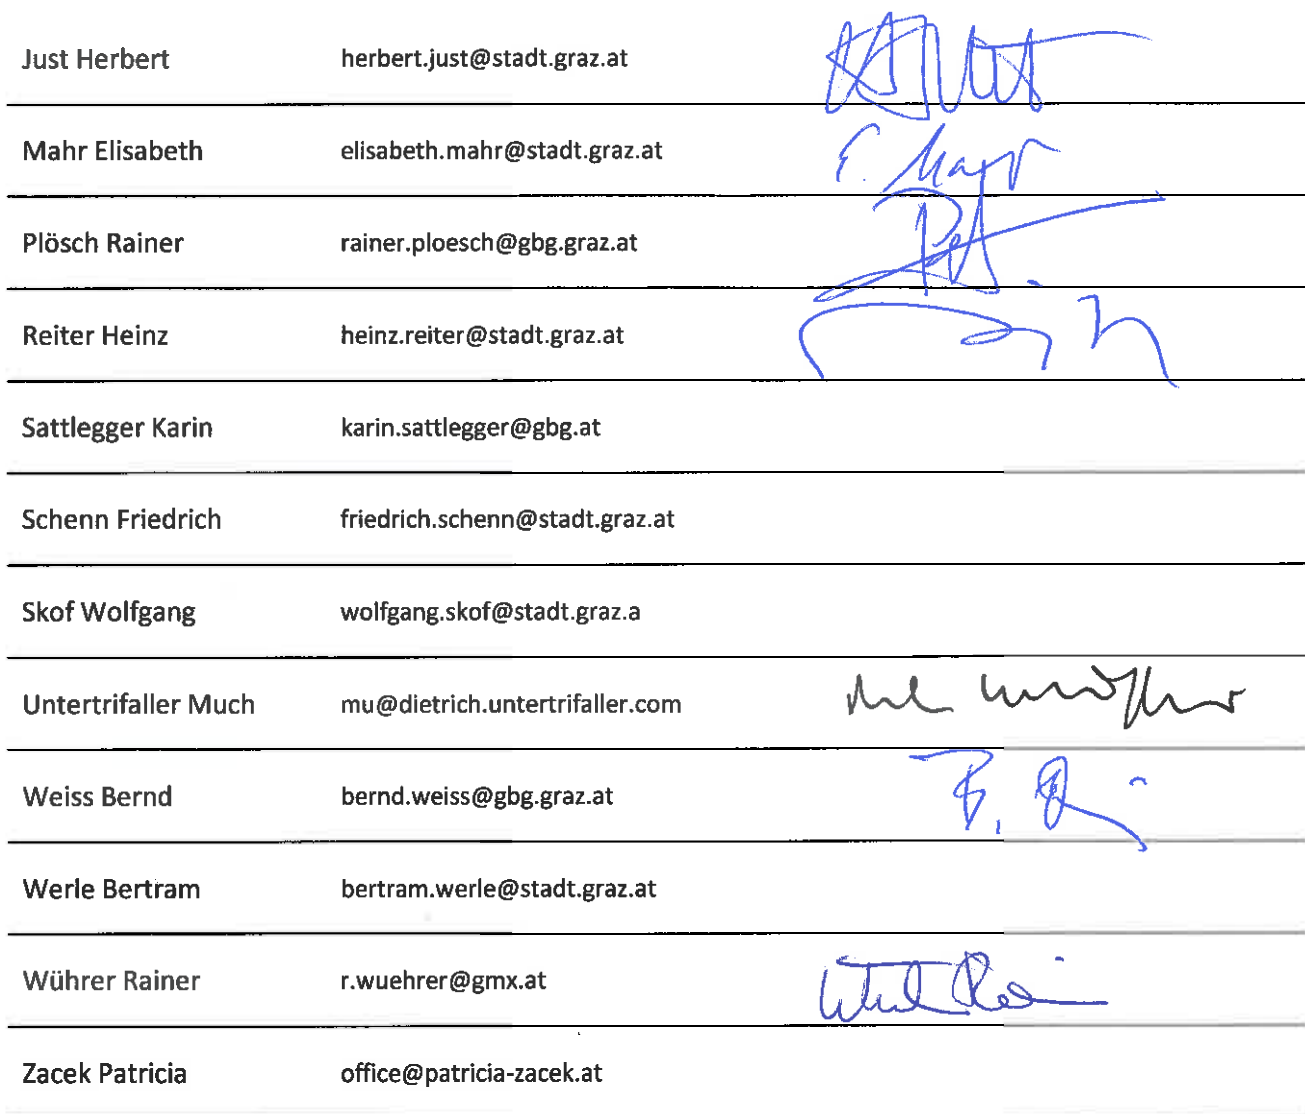 Just Herbert herbert.just@stadt.graz.at
Mahr Elisabeth elisabeth.mahr@stadt.graz.at E.
Plösch Rainer rainer.ploesch@gbg.graz.at
Reiter Heinz heinz.reiter@stadt.graz.at
Sattlegger Karin karin.sattlegger@gbg.at
Schenn Friedrich friedrich.schenn@stadt.graz.at
Skof Wolfgang wolfgang.skof@stadt.graz.a
Untertrifaller Much mu@dietrich.untertrifaller.com
Weiss Bernd bernd.weiss@gbg.graz.at B.
Werle Bertram bertram.werle@stadt.graz.at
Wührer Rainer r.wuehrer@gmx.at
Zacek Patricia office@patricia-zacek.at